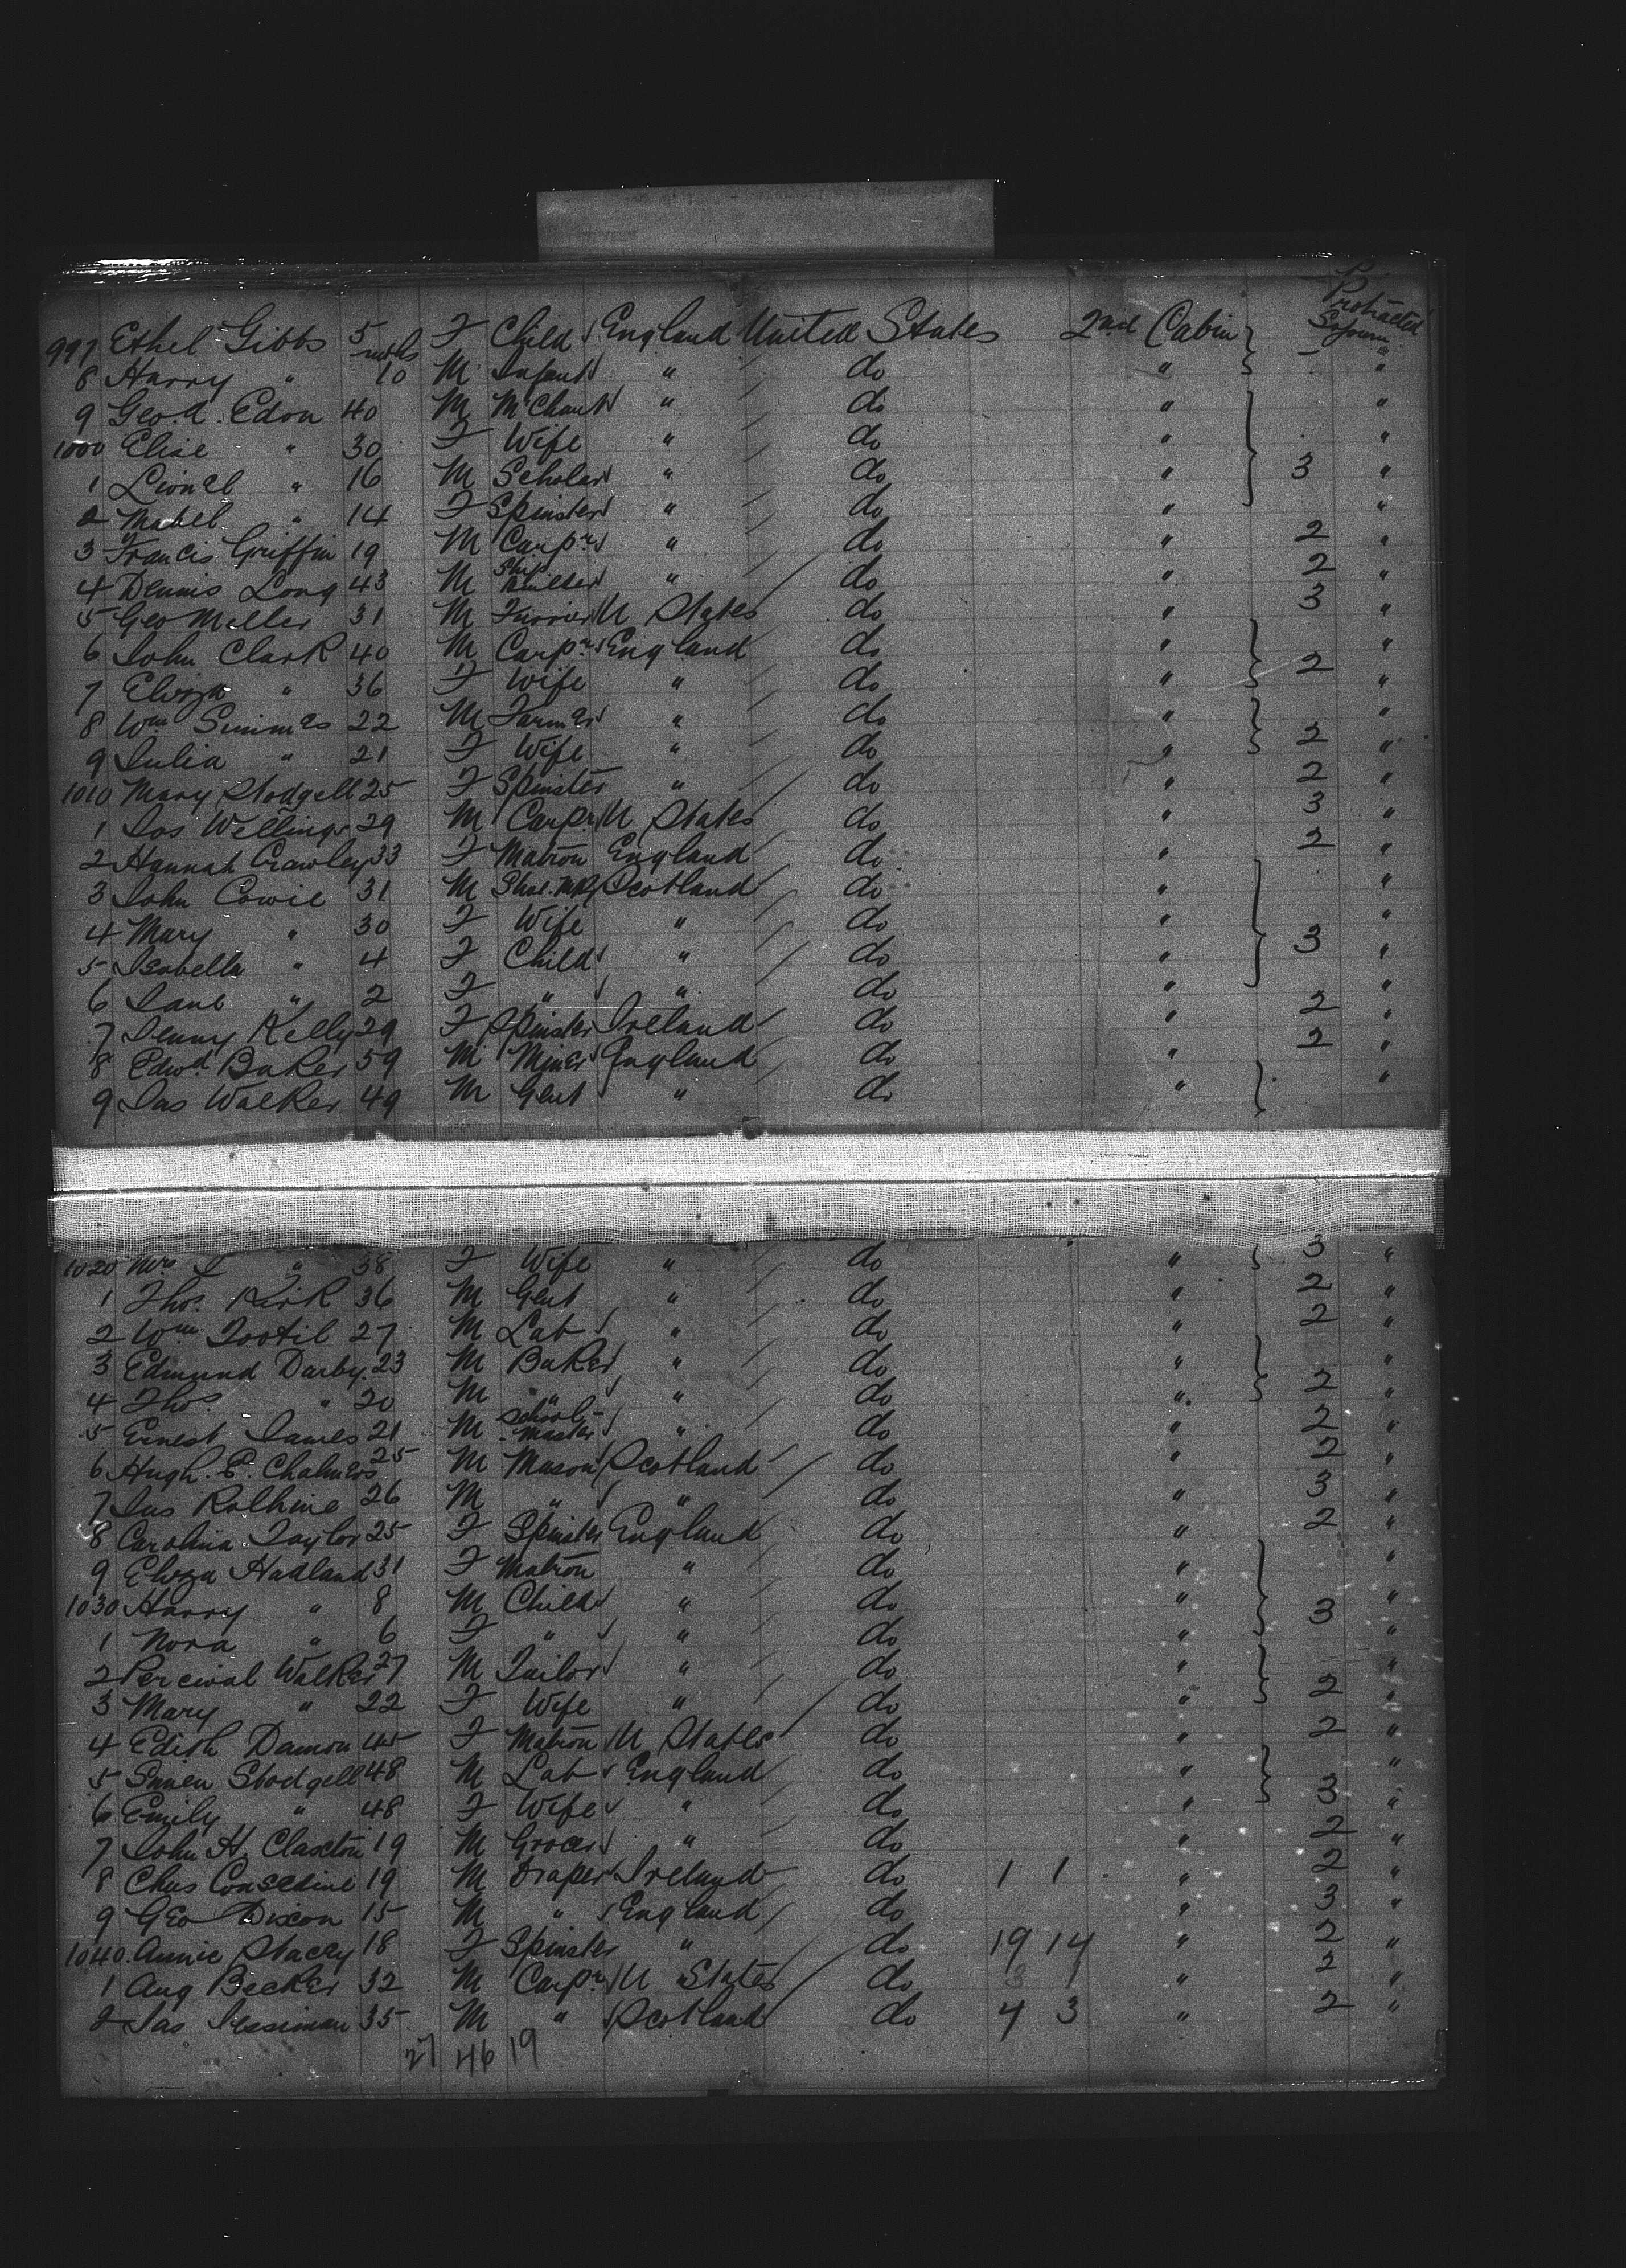 Protracted
Sojourn
997 Ethel Gibbs 5 F Child England United States 2nd Cabin - "
mths
8 Harry " 10 M Infant " do " "
9 Geo. A. Edon 40 M Mchant " do " "
1000 Elise " 30 F Wife " do " "
1 Lionel " 16 M Scholar " do " 3 "
2 Mabel " 14 F Spinster " do " "
3 Francis Griffin 19 M Carpr " do " 2 "
4 Dennis Long 43 M Ship Builder " do " 2 "
5 Geo Meller 31 M Furrier U States do " 3 "
6 John Clark 40 M Carpr England do " "
7 Eliza " 36 F Wife " do " 2 "
8 Wm Simmes 22 M Farmer " do " "
9 Julia " 21 F Wife " do " 2 "
1010 Mary Stodgell 25 F Spinster " do " 2 "
1 Jos Wellings 29 M Carpr U States do " 3 "
2 Hannah Crawley 33 F Matron England do " 2 "
3 John Cowie 31 M Shoe.Mkr Scotland do " "
4 Mary " 30 F Wife " do " "
5 Isabella " 4 F Child " do " 3 "
6 Jane " 2 F " " do " "
7 Jenny Kelly 29 F Spinster Ireland do " 2 "
8 Edwd Baker 59 M Miner England do " 2 "
9 Jas Walker 49 M Gent " do " "
1020 Mrs J " 38 F Wife " do " 3 "
1 Thos. Kirk 36 M Gent " do " 2 "
2 Wm Tootil 27 M Lab " do " 2 "
3 Edmund Darby 23 M Baker " do " "
4 Thos " 20 M " " do " 2 "
5 Ernest James 21 M School-Master " do " 2 "
6 Hugh. P. Chalmers 25 M Mason Scotland do " 2 "
7 Jas 26 M " " do " 3 "
8 Carolina Taylor 25 F Spinster England do " 2 "
9 Eliza Hadland 31 F Matron " do " "
1030 Harry " 8 M Child " do " 3 "
1 Nora " 6 F " " do " "
2 Percival Walker 27 M Tailor " do " "
3 Mary " 22 F Wife " do " 2 "
4 Edith Damon 45 F Matron U States do " 2 "
5 Stodgell 48 M Lab England do " "
6 Emily " 48 F Wife " do " 3 "
7 John H. Claxton 19 M Grocer " do " 2 "
8 Chas Consedine 19 M Draper Ireland do 1 1 " 2 "
9 Geo Dixon 15 M " England do " 3 "
1040 Annie Stacey 18 F Spinster " do 19 14 " 2 "
1 Aug Becker 32 M Carpr U States do 3 1 " 2 "
2 Jas Jessiman 35 M " Scotland do 4 3 " 2 "
27 46 19